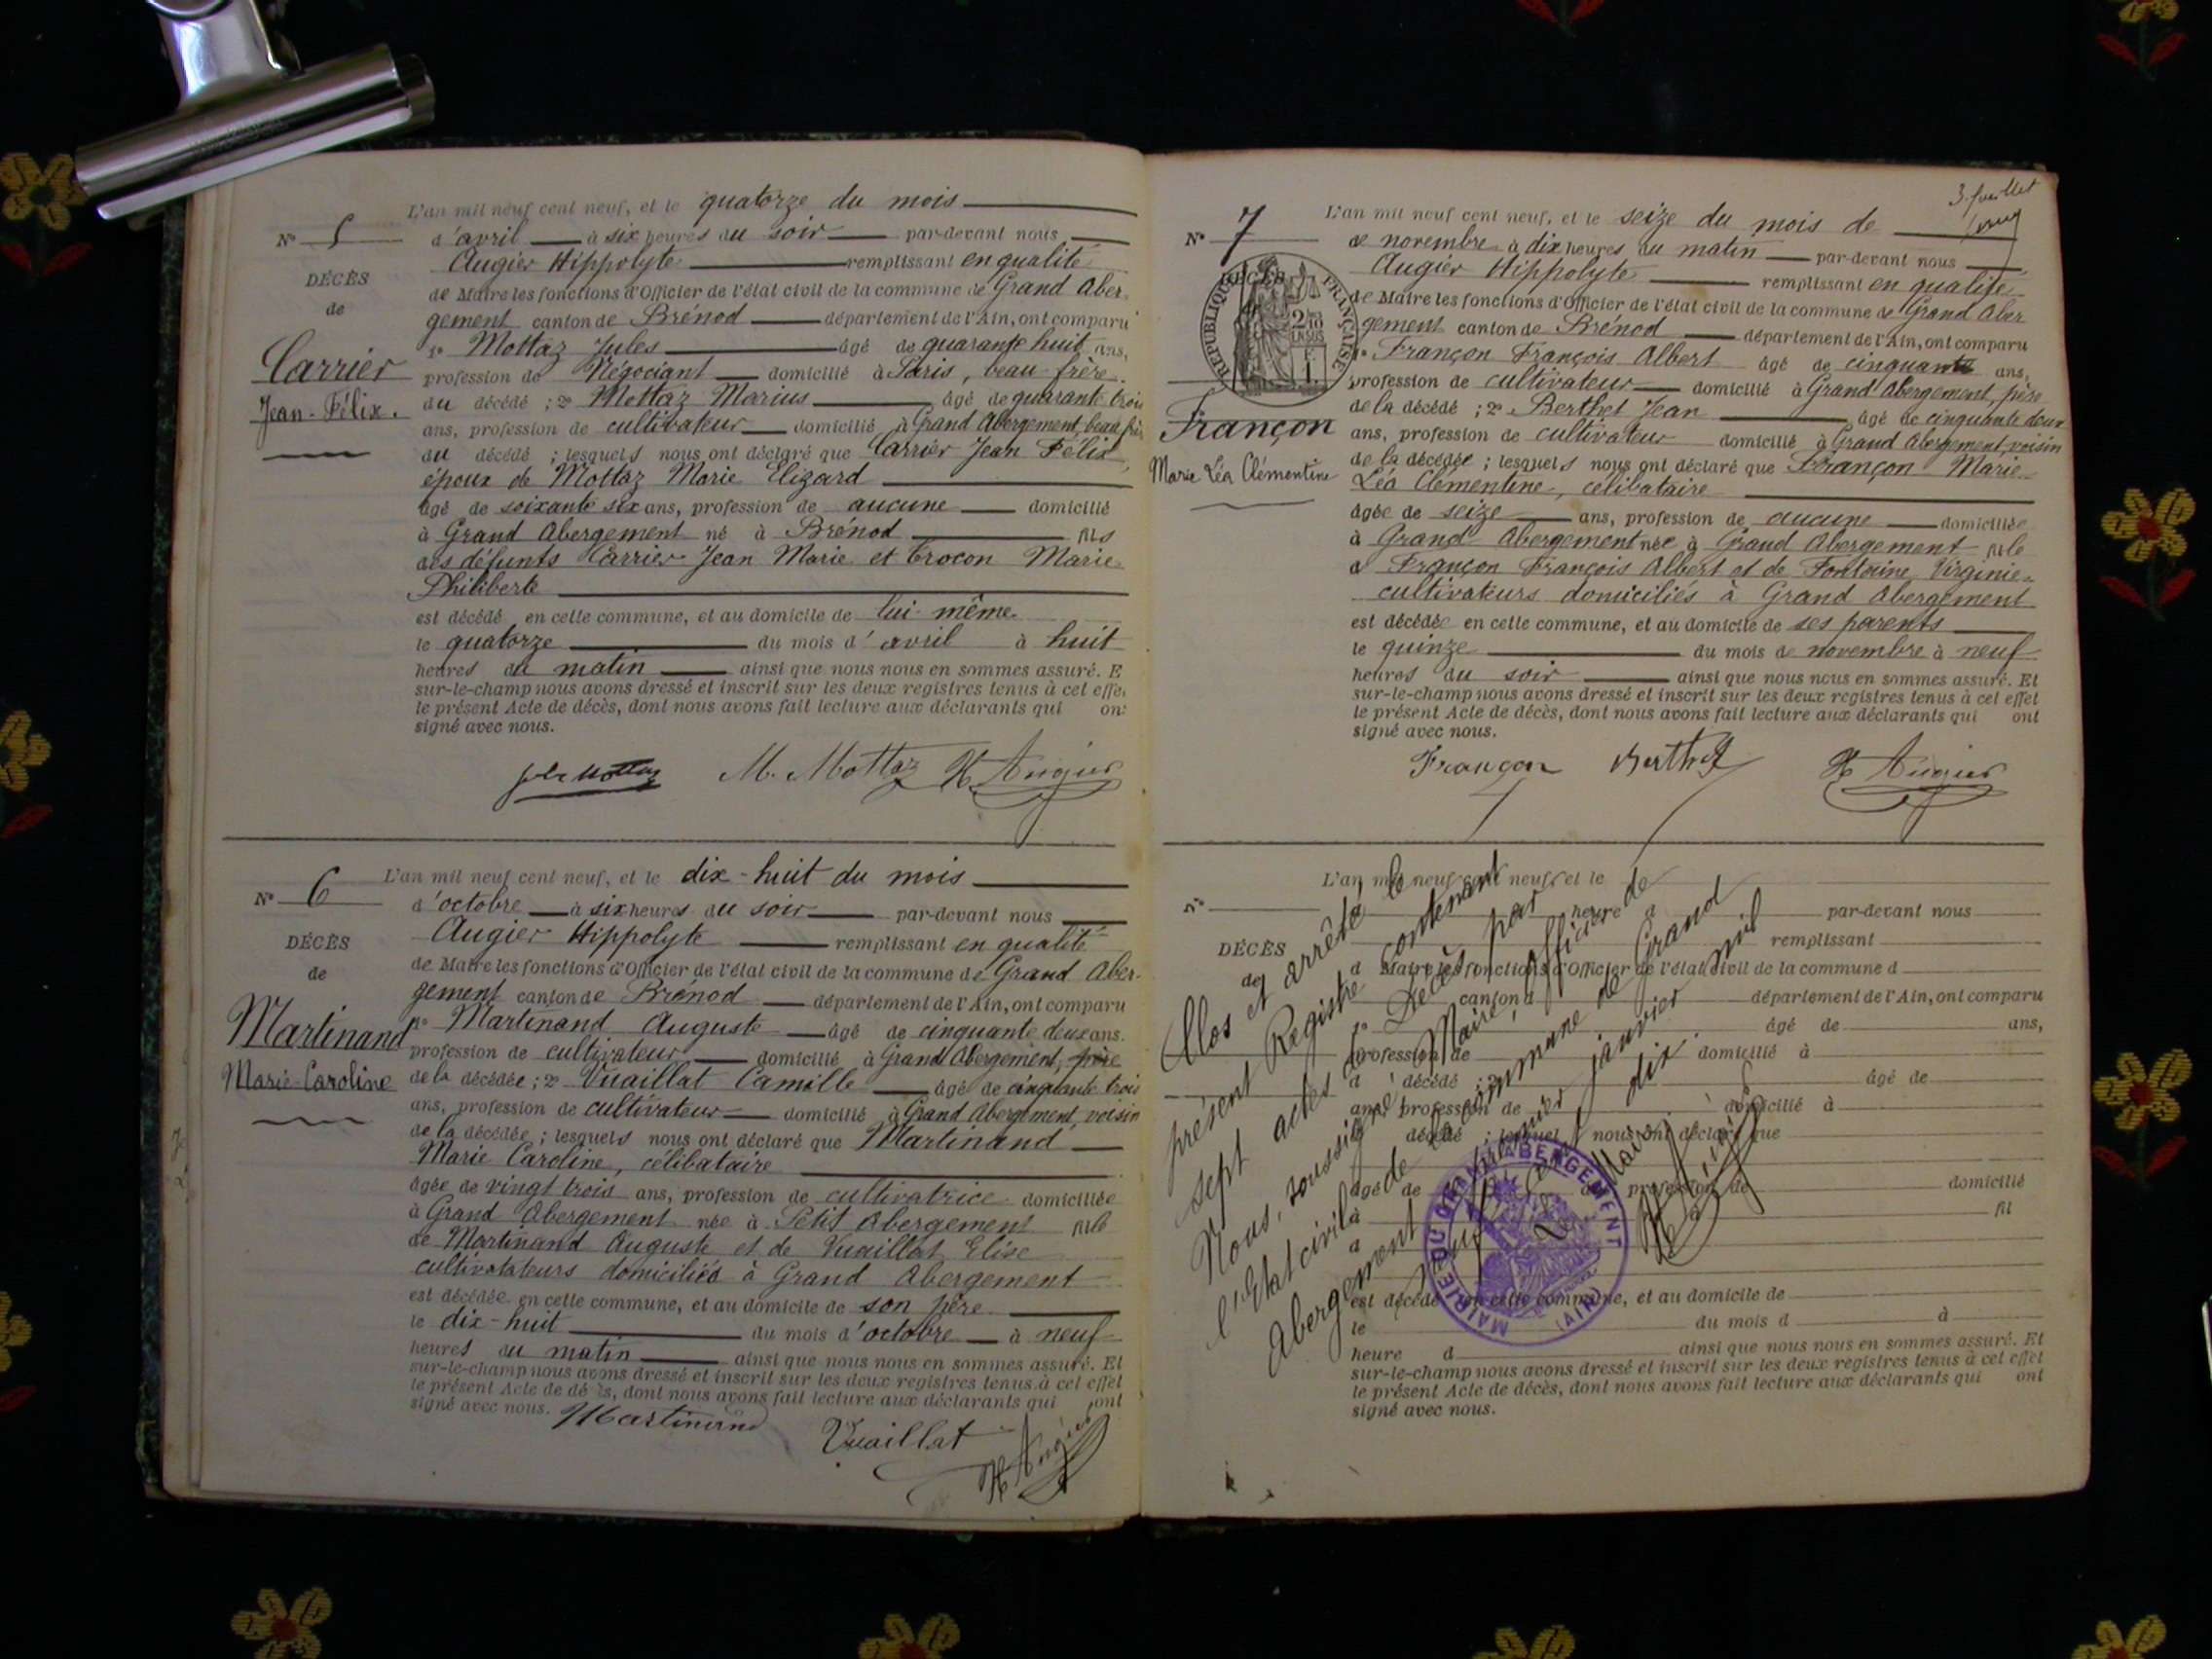 L'an mil neuf cent neuf, et le quatorze du mois
N° 5
d'avril à six heures du soir par-devant nous
Augier Hippolyte remplissant en qualité
DÉCÈS
de Maire les fonctions d'Officier de l'état civil de la commune de Grand Aber-
de
gement canton de Brénod département de l'Ain, ont comparu
1° Mottaz Jules âgé de quarante huit ans,
Carrier
profession de Négociant domicilié à Paris, beau-frère
Jean-Félix.
du décédé ; 2° Mottaz Marius âgé de quarante trois
ans, profession de cultivateur domicilié à Grand Abergement, beau frè
du décédé ; lesquels nous ont déclaré que Carrier Jean Félix,
époux de Mottaz Marie Elizard
âgé de soixante six ans, profession de aucune domicilié
à Grand Abergement né à Brénod fils
des défunts Carrier Jean Marie et Crocon Marie-
Philiberte
est décédé en cette commune, et au domicile de lui-même
le quatorze du mois d'avril à huit
heures du matin ainsi que nous nous en sommes assuré. E
sur-le-champ nous avons dressé et inscrit sur les deux registres tenus à cet effe
le présent Acte de décès, dont nous avons fait lecture aux déclarants qui on
signé avec nous.
Jules Mottaz M. Mottaz H Augier
L'an mil neuf cent neuf, et le dix-huit du mois
N° 6
d'octobre à six heures du soir par-devant nous
Augier Hippolyte remplissant en qualité
DÉCÈS
de Maire les fonctions d'Officier de l'état civil de la commune de Grand Aber-
de
gement canton de Brénod département de l'Ain, ont comparu
1° Martinand Auguste âgé de cinquante deux ans.
Martinand
profession de cultivateur domicilié à Grand Abergement, père
Marie-Caroline
de la décédée ; 2° Vuaillat Camille âgé de cinquante trois
ans, profession de cultivateur domicilié à Grand Abergement, voisin
de la décédée ; lesquels nous ont déclaré que Martinand
Marie Caroline, célibataire
âgée de vingt trois ans, profession de cultivatrice domiciliée
à Grand Abergement née à Petit Abergement fille
de Martinand Auguste et de Vuaillat Elise
cultivatateurs domiciliés à Grand Abergement
est décédée en cette commune, et au domicile de son père
le dix-huit du mois d'octobre à neuf
heures du matin ainsi que nous nous en sommes assuré. Et
sur-le-champ nous avons dressé et inscrit sur les deux registres tenus à cet effet
le présent Acte de dé ès, dont nous avons fait lecture aux déclarants qui ont
signé avec nous. Martinand
Vuaillat
H Augier
3. feuillet
L'an mil neuf cent neuf, et le seize du mois de
N° 7
de novembre à dix heures du matin par-devant nous
Augier Hippolyte remplissant en qualité
DÉCÈS
RÉPUBLIQUE FRANÇAISE
2/10 EN SUS
de Maire les fonctions d'Officier de l'état civil de la commune de Grand Aber
gement canton de Brénod département de l'Ain, ont comparu
1° Françon François Albert âgé de cinquante ans,
profession de cultivateur domicilié à Grand Abergement, père
de la décédé ; 2° Berthet Jean âgé de cinquante deux
Françon
ans, profession de cultivateur domicilié à Grand Abergement, voisin
Marie Léa Clémentine
de la décédée ; lesquels nous ont déclaré que Françon Marie-
Léa Clémentine, célibataire
âgée de seize ans, profession de aucune domiciliée
à Grand Abergement née à Grand Abergement fille
d Françon François Albert et de Fontaine Virginie-
cultivateurs domiciliés à Grand Abergement
est décédée en cette commune, et au domicile de ses parents
le quinze du mois de novembre à neuf
heures du soir ainsi que nous nous en sommes assuré. Et
sur-le-champ nous avons dressé et inscrit sur les deux registres tenus à cet effet
le présent Acte de décès, dont nous avons fait lecture aux déclarants qui ont
signé avec nous.
Françon Berthet H Augier
L'an mil neuf cent neuf, et le
N°
heure d par-devant nous
remplissant
DÉCÈS
d Maire les fonctions d'Officier de l'état civil de la commune d
de
canton d département de l'Ain, ont comparu
1° âgé de ans,
profession de domicilié à
d décédé ; 2° âgé de
ans, profession de domicilié à
d décédé ; lesquel nous ont déclaré que
âgé de ans, profession de domicilié
à fil
d
est décédé en cette commune, et au domicile de
le du mois d à
heure d ainsi que nous nous en sommes assuré. Et
sur-le-champ nous avons dressé et inscrit sur les deux registres tenus à cet effet
le présent Acte de décès, dont nous avons fait lecture aux déclarants qui ont
signé avec nous.
Clos et arrêté le
présent Registre contenant
sept actes de Décès, par
Nous, soussigné, Maire, officier de
l'Etat civil de la commune de Grand
Abergement le premier janvier mil
neuf cent dix.
Le Maire
H Augier
MAIRIE DU GRAND ABERGEMENT
(AIN)